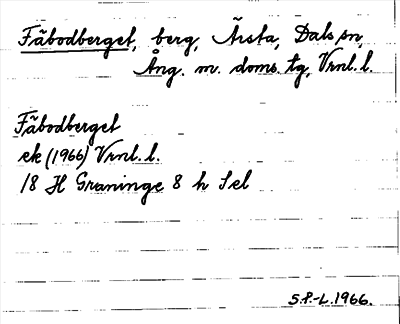 Fäbodberget, berg, Ärsta, Dals sn,
Ång. m. doms. tg, Vrnl. l.
Fäbodberget
ek (1966) Vrnl. l.
18 H Graninge 8 h Sel
S.P.-L. 1966.